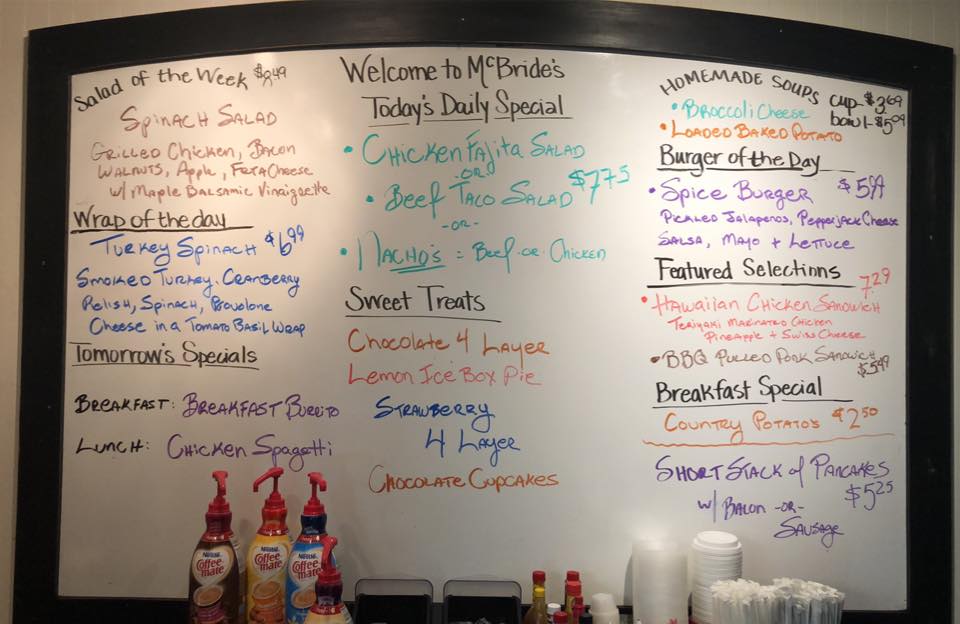 Salad of the Week $8.49
Spinach Salad
Grilled Chicken, Bacon
Walnuts, Apple, Feta Cheese
w/ Maple Balsamic Vinaigrette
Wrap of the day
Turkey Spinach $6.99
Smoked Turkey, Cranberry
Relish, Spinach, Provolone
Cheese in a Tomato Basil Wrap
Tomorrow's Specials
Breakfast: Breakfast Burrito
Lunch: Chicken Spagetti
Welcome to McBride's
Today's Daily Special
• Chicken Fajita Salad
-or-
• Beef Taco Salad $7.75
-or-
• Nacho's = Beef -or- Chicken
Sweet Treats
Chocolate 4 Layer
Lemon Ice Box Pie
Strawberry
4 Layer
Chocolate Cupcakes
Homemade Soups cup-$3.69
bowl-$5.09
• Broccoli Cheese
• Loaded Baked Potato
Burger of the Day
• Spice Burger $5.99
Pickled Jalapenos, Pepperjack Cheese
Salsa, Mayo + Lettuce
Featured Selections
• Hawaiian Chicken Sandwich 7.29
Teriyaki Marinated Chicken
Pineapple + Swiss Cheese
• BBQ Pulled Pork Sandwich
$5.49
Breakfast Special
Country Potatos $2.50
Short Stack of Pancakes
$5.25
w/ Bacon -or-
Sausage
Nestle
Coffee-mate
Nestle
Coffee-mate
Nestle
Coffee-mate